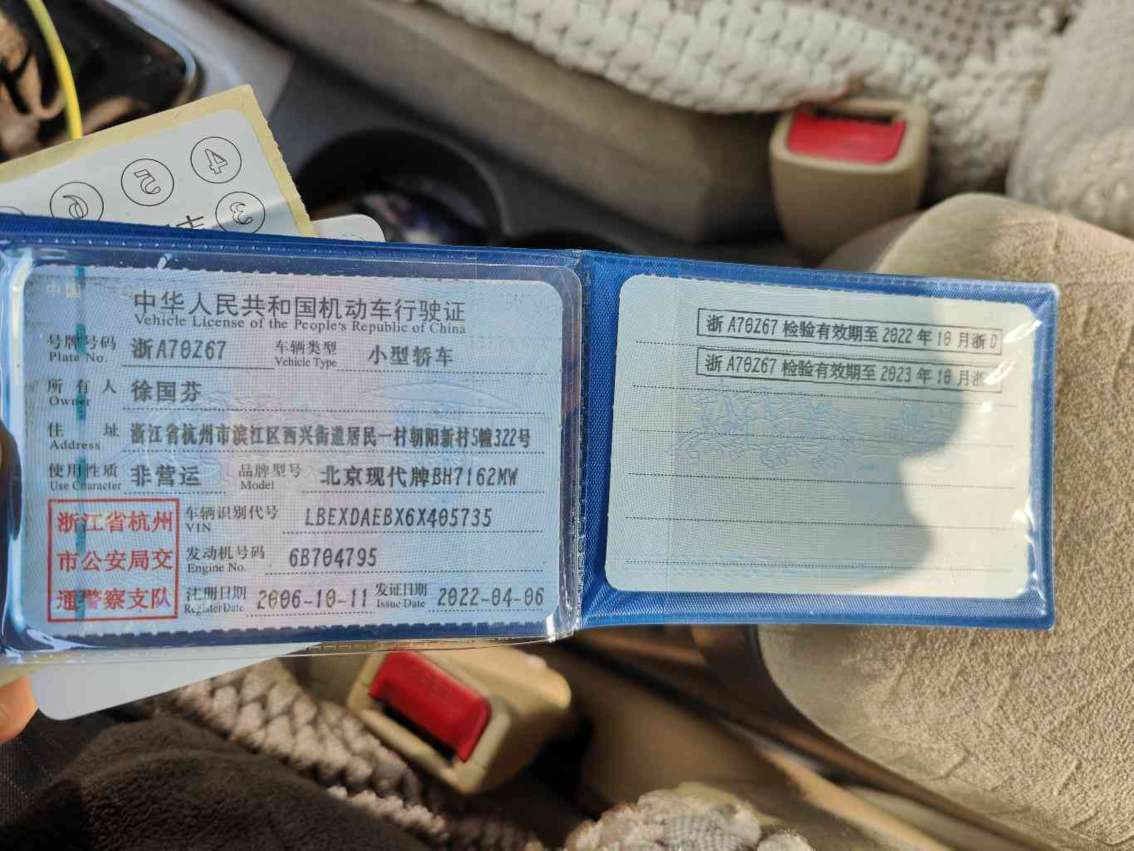 4
5
6
3
中华人民共和国机动车行驶证
Vehicle License of the People's Republic of China
号牌号码 浙A70Z67 车辆类型 小型轿车
Plate No. Vehicle Type
所有人 徐国芬
Owner
住址 浙江省杭州市滨江区西兴街道居民一村朝阳新村5幢322号
Address
使用性质 非营运 品牌型号 北京现代牌BH7162MW
Use Character Model
浙江省杭州
市公安局交
通警察支队
车辆识别代号 LBEXDAEBX6X405735
VIN
发动机号码 6B704795
Engine No.
注册日期 2006-10-11 发证日期 2022-04-06
Register Date Issue Date
浙A70Z67 检验有效期至 2022年10月浙D
浙A70Z67 检验有效期至 2023年10月浙